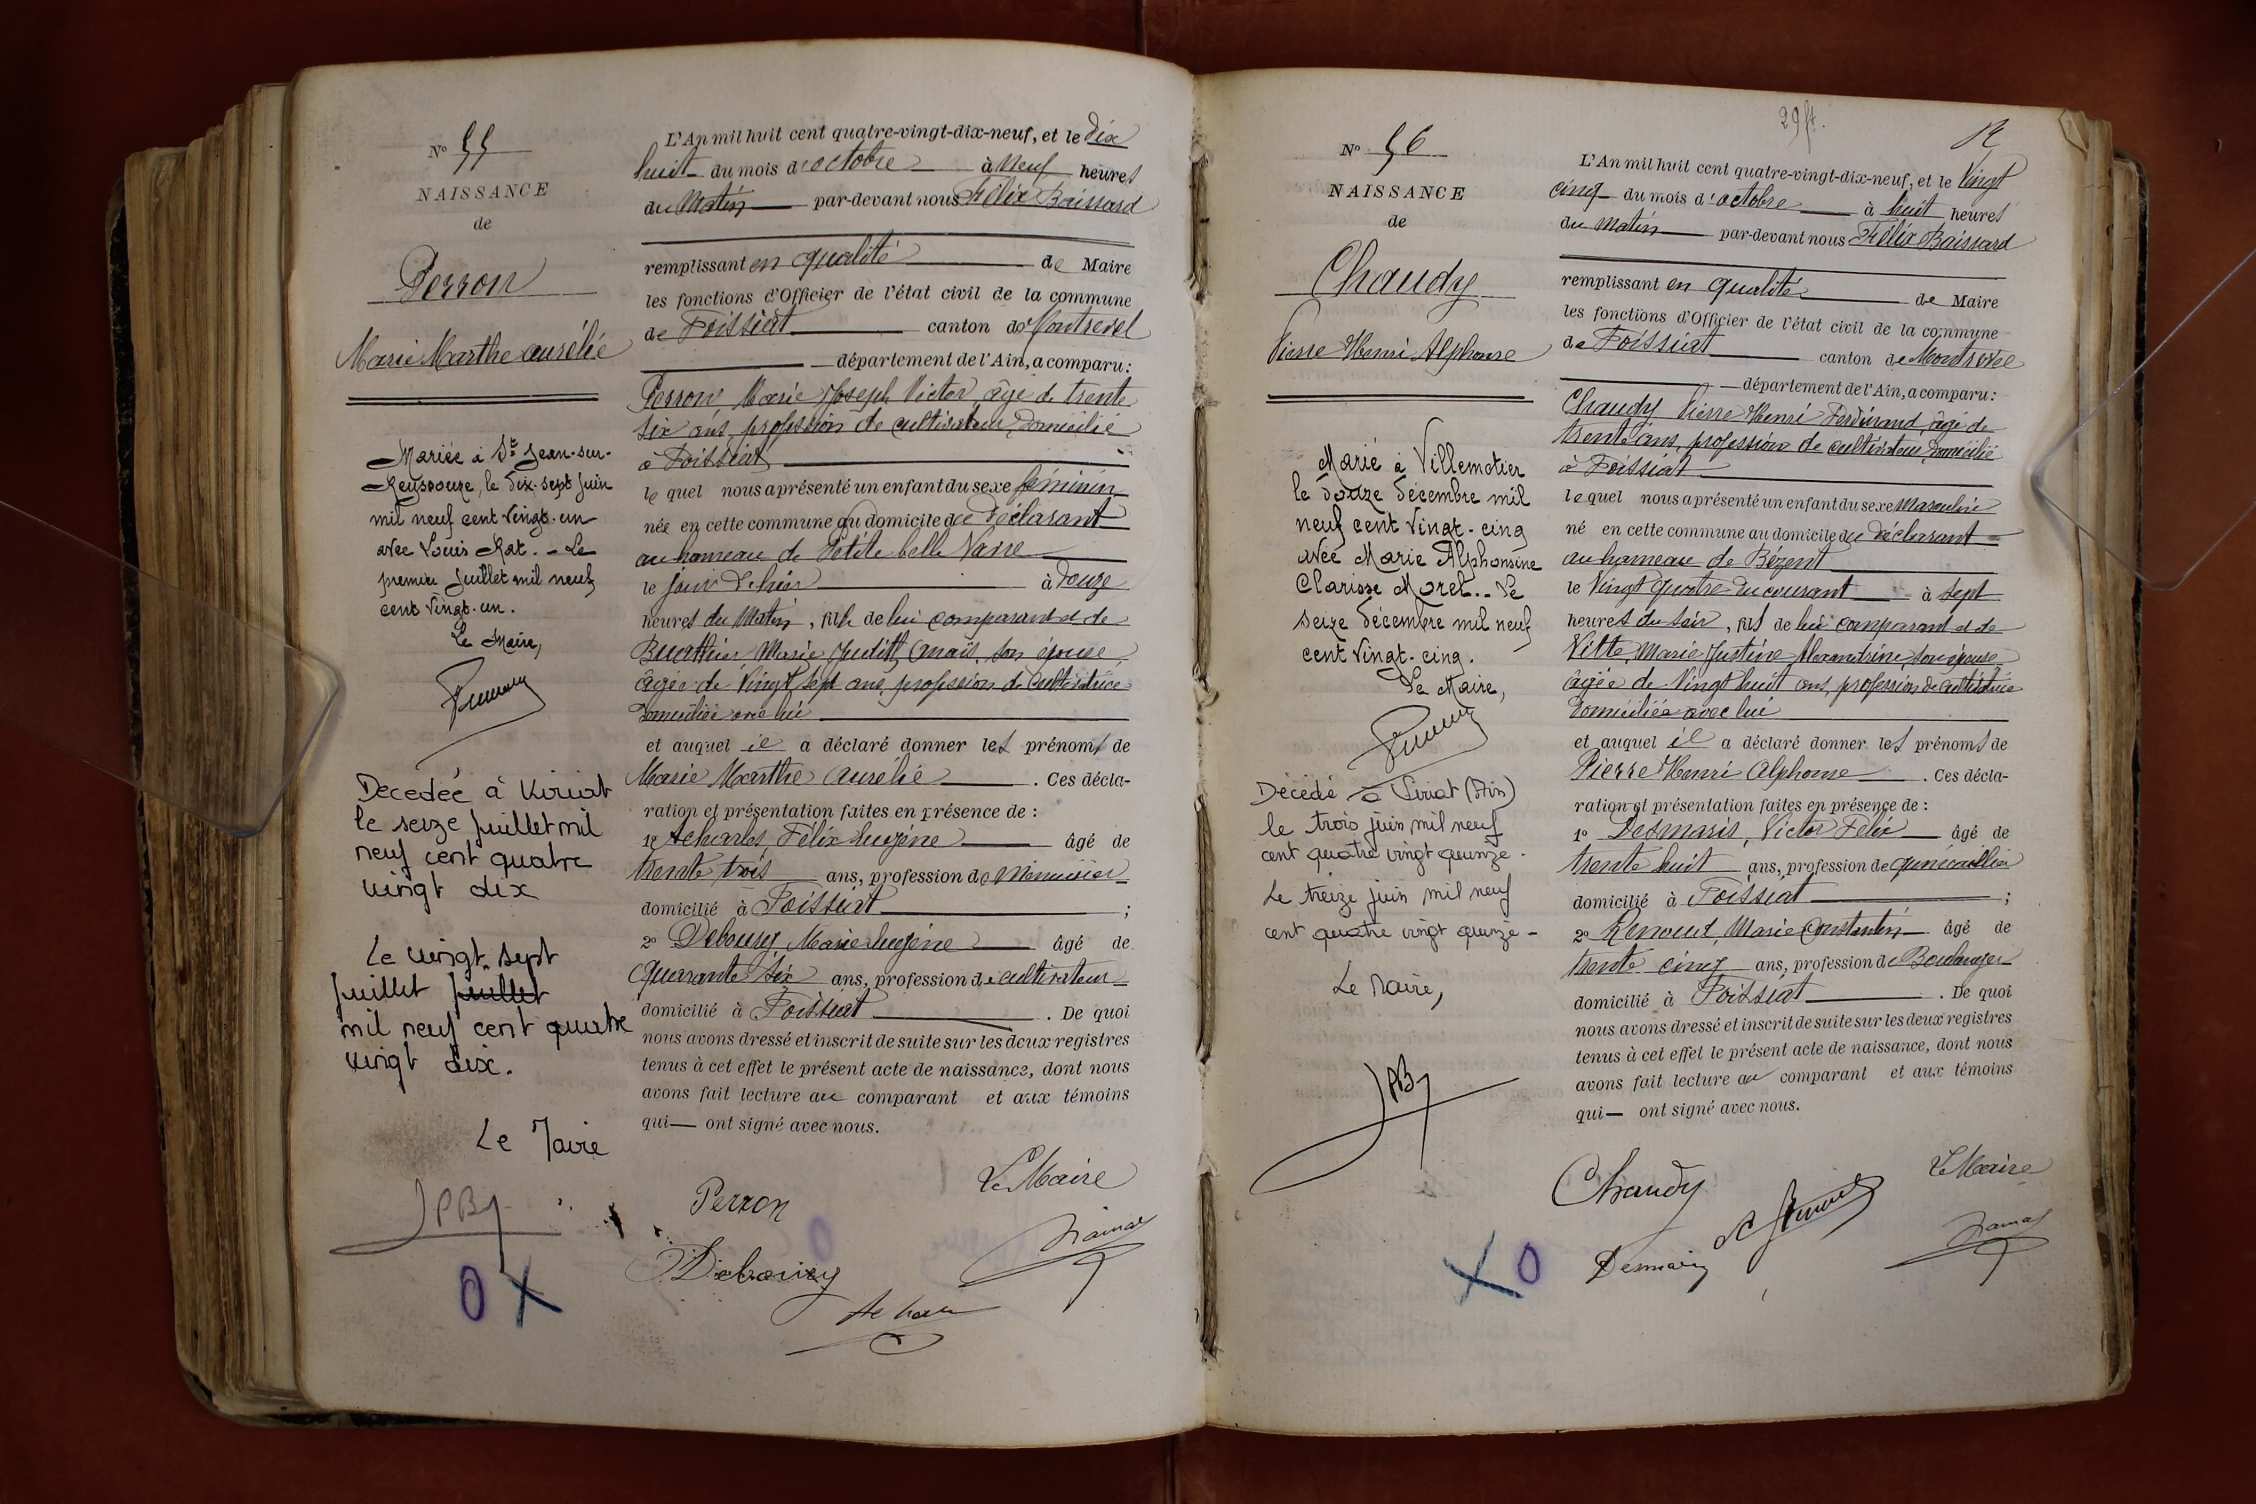 N° 55
NAISSANCE
de
Perron
Marie Marthe aurélie
Mariée à St Jean-sur-
Reyssouze, le dix-sept juin
mil neuf cent vingt-un
avec Louis Rat. - Le
premier juillet mil neuf
cent vingt-un.
Le Maire,
Décédée à Viriat
le seize juillet mil
neuf cent quatre
vingt dix
Le vingt sept
juillet juillet
mil neuf cent quatre
vingt dix.
Le Maire
JPB
O X
L'An mil huit cent quatre-vingt-dix-neuf, et le dix
huit du mois d'octobre à neuf heures
du matin par-devant nous Félix Baissard
remplissant en qualité de Maire
les fonctions d'Officier de l'état civil de la commune
de Foissiat canton de Montrevel
département de l'Ain, a comparu:
Perron Marie Joseph Victor, âgé de trente
six ans, profession de cultivateur, domicilié
à Foissiat
le quel nous a présenté un enfant du sexe féminin
née en cette commune au domicile du déclarant
au hameau de Petite belle Vavre
le jour d'hier à douze
heures du matin, fille de lui comparant et de
Buathier Marie Judith Anaïs, son épouse
âgée de vingt sept ans, profession de cultivatrice
domiciliée avec lui
et auquel il a déclaré donner les prénoms de
Marie Marthe aurélie. Ces décla-
ration et présentation faites en présence de :
1° Acharles, Félix Eugène âgé de
trente trois ans, profession de menuisier
domicilié à Foissiat ;
2° Debourg Marie Eugène âgé de
quarante six ans, profession de cultivateur
domicilié à Foissiat. De quoi
nous avons dressé et inscrit de suite sur les deux registres
tenus à cet effet le présent acte de naissance, dont nous
avons fait lecture au comparant et aux témoins
qui — ont signé avec nous.
Le Maire
Perron
Debourg
N° 56
NAISSANCE
de
Chaudy
Pierre Henri Alphonse
Marié à Villemotier
le douze décembre mil
neuf cent vingt-cinq
avec Marie Alphonsine
Clarisse Morel. - Le
seize décembre mil neuf
cent vingt-cinq.
Le Maire,
Décédé à Viriat (Ain)
le trois juin mil neuf
cent quatre vingt quinze.
Le treize juin mil neuf
cent quatre vingt quinze -
Le Maire,
JPB
X O
L'An mil huit cent quatre-vingt-dix-neuf, et le vingt
cinq du mois d'octobre à huit heures
du matin par-devant nous Félix Baissard
remplissant en qualité de Maire
les fonctions d'Officier de l'état civil de la commune
de Foissiat canton de Montrevel
département de l'Ain, a comparu:
Chaudy Pierre Henri Ferdinand, âgé de
trente ans, profession de cultivateur, domicilié
à Foissiat
le quel nous a présenté un enfant du sexe Masculin
né en cette commune au domicile du déclarant
au hameau de Bézent
le vingt quatre du courant à sept
heures du soir, fils de lui comparant et de
Vitte, Marie Justine Alexandrine, son épouse
âgée de vingt huit ans, profession de cultivatrice
domiciliée avec lui
et auquel il a déclaré donner les prénoms de
Pierre Henri Alphonse. Ces décla-
ration et présentation faites en présence de :
1° Desmaris, Victor Félix âgé de
trente huit ans, profession de quincaillier
domicilié à Foissiat ;
2° Renoud, Marie Constantin âgé de
trente cinq ans, profession de Boulanger
domicilié à Foissiat. De quoi
nous avons dressé et inscrit de suite sur les deux registres
tenus à cet effet le présent acte de naissance, dont nous
avons fait lecture au comparant et aux témoins
qui — ont signé avec nous.
Le Maire
Chaudy
Desmaris